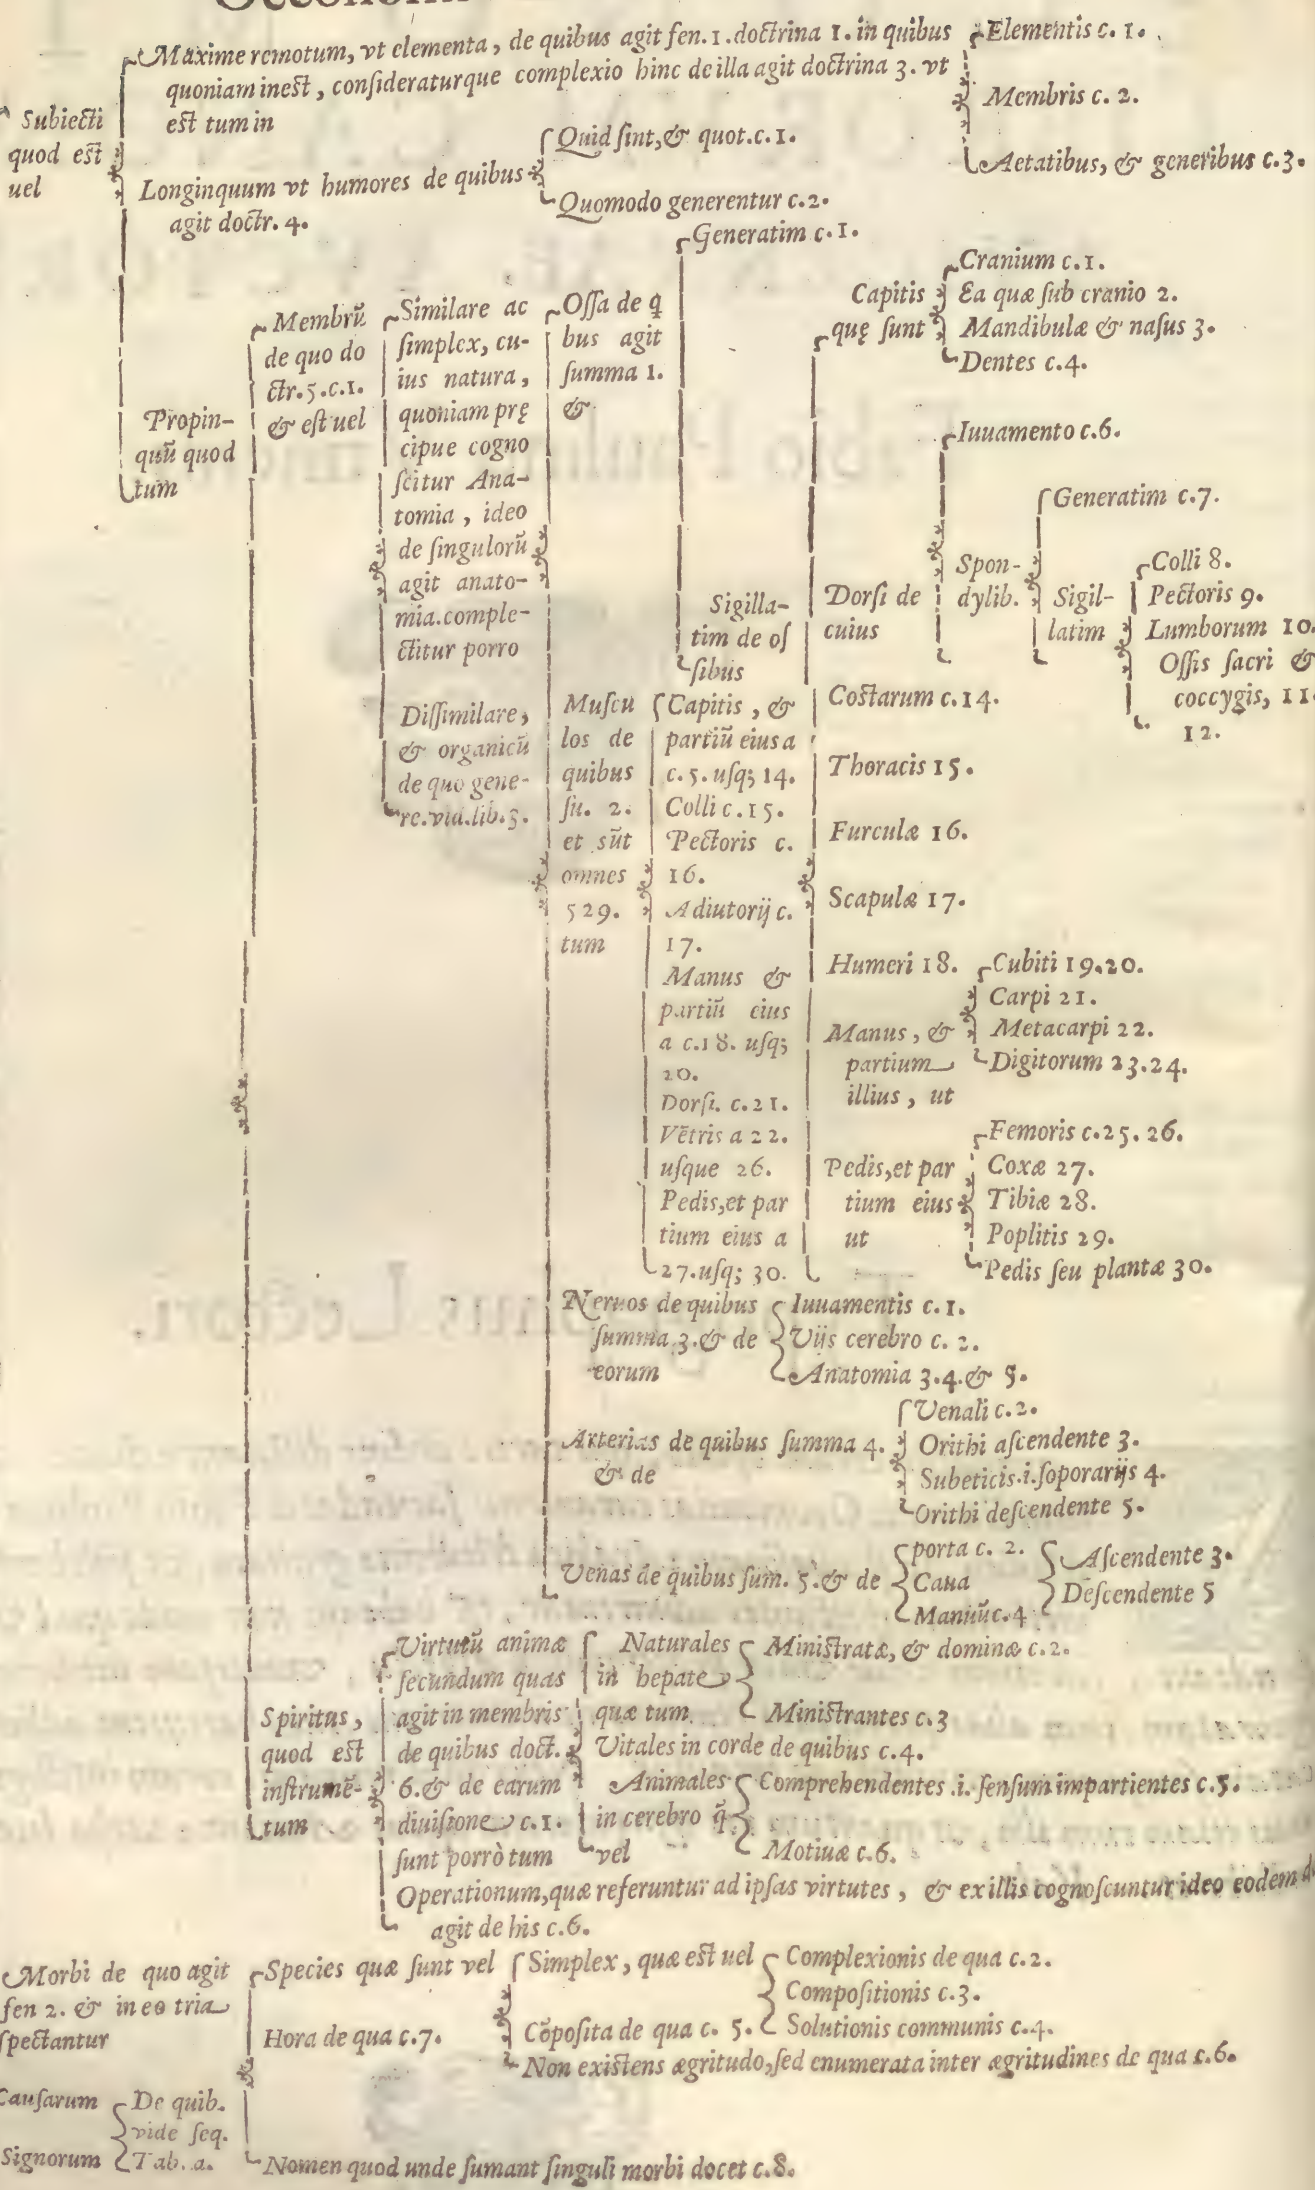 Maxime remotum, vt elementa, de quibus agit fen. 1. doctrina 1. in quibus
quoniam inest, consideraturque complexio hinc de illa agit doctrina 3. vt
est tum in
Elementis c. 1.
Membris c. 2.
Aetatibus, & generibus c. 3.
Subiecti
quod est
uel
Longinquum vt humores de quibus
agit doctr. 4.
Quid sint, & quot. c. 1.
Quomodo generentur c. 2.
Propin-
quũ quod
tum
Membrũ
de quo do
ctr. 5. c. 1.
& est uel
Similare ac
simplex, cu-
ius natura,
quoniam prę
cipue cogno
scitur Ana-
tomia, ideo
de singulorũ
agit anato-
mia. comple-
ctitur porro
Dissimilare,
& organicũ
de quo gene-
re. vid. lib. 3.
Ossa de q̃
bus agit
summa 1.
&
Generatim c. 1.
Sigilla-
tim de os
sibus
Capitis
quę sunt
Cranium c. 1.
Ea quæ sub cranio 2.
Mandibulæ & nasus 3.
Dentes c. 4.
Dorsi de
cuius
Iuuamento c. 6.
Spon-
dylib.
Generatim c. 7.
Sigil-
latim
Colli 8.
Pectoris 9.
Lumborum 10.
Ossis sacri &
coccygis, 11.
12.
Costarum c. 14.
Thoracis 15.
Furculæ 16.
Scapulæ 17.
Humeri 18.
Manus, &
partium
illius, ut
Cubiti 19. 20.
Carpi 21.
Metacarpi 22.
Digitorum 23. 24.
Pedis, et par
tium eius
ut
Femoris c. 25. 26.
Coxæ 27.
Tibiæ 28.
Poplitis 29.
Pedis seu plantæ 30.
Muscu
los de
quibus
su. 2.
et sũt
omnes
529.
tum
Capitis, &
partiũ eius a
c. 5. usq; 14.
Colli c. 15.
Pectoris c.
16.
Adiutorij c.
17.
Manus &
partiũ eius
a c. 18. usq;
20.
Dorsi. c. 21.
Vẽtris a 22.
usque 26.
Pedis, et par
tium eius a
27. usq; 30.
Neruos de quibus
summa 3. & de
eorum
Iuuamentis c. 1.
Vijs cerebro c. 2.
Anatomia 3. 4. & 5.
Arterias de quibus summa 4.
& de
Venali c. 2.
Orithi ascendente 3.
Subeticis .i. soporarijs 4.
Orithi descendente 5.
Venas de quibus sum. 5. & de
porta c. 2.
Caua
Manuũ c. 4
Ascendente 3.
Descendente 5
Spiritus,
quod est
instrumẽ-
tum
Virtutũ animæ
secundum quas
agit in membris
de quibus doct.
6. & de earum
diuisione c. 1.
sunt porrò tum
Naturales
in hepate
quæ tum
Ministratæ, & dominæ c. 2.
Ministrantes c. 3
Vitales in corde de quibus c. 4.
Animales
in cerebro q̃
vel
Comprehendentes .i. sensum impartientes c. 5.
Motiuæ c. 6.
Operationum, quæ referuntur ad ipsas virtutes, & ex illis cognoscuntur ideo eodem
agit de his c. 6.
Morbi de quo agit
fen 2. & in eo tria
spectantur
Species quæ sunt vel
Simplex, quæ est uel
Complexionis de qua c. 2.
Compositionis c. 3.
Solutionis communis c. 4.
Cõposita de qua c. 5.
Non existens ægritudo, sed enumerata inter ægritudines de qua c. 6.
Hora de qua c. 7.
Nomen quod unde sumant singuli morbi docet c. 8.
Causarum
Signorum
De quib.
vide seq.
Tab. a.